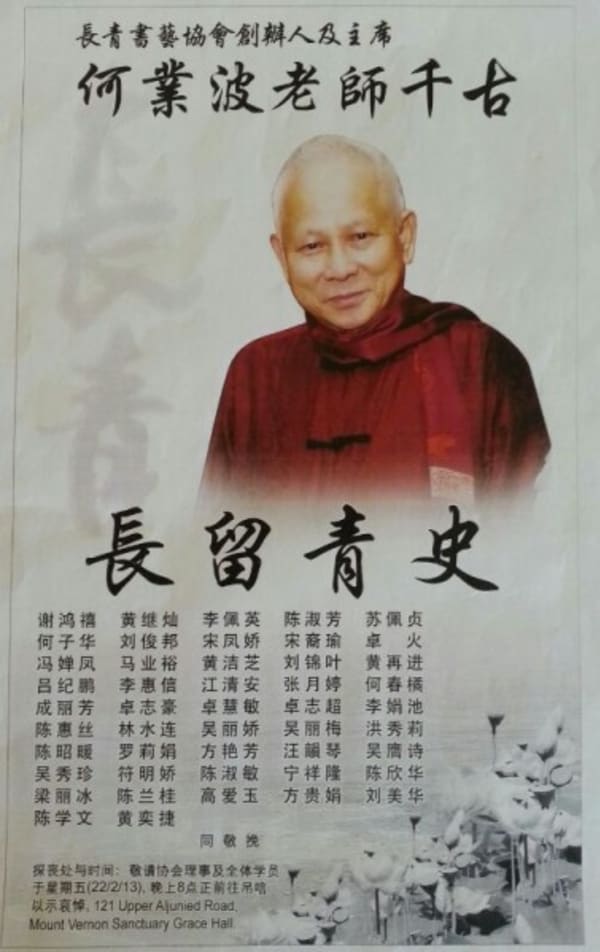 長青書藝協會創辦人及主席
何業波老師千古
長青
長留青史
谢鸿禧 黄继灿 李佩英 陈淑芳 苏佩贞
何子华 刘俊邦 宋凤娇 宋裔瑜 卓火
冯婵凤 马业裕 黄洁芝 刘锦叶 黄再进
吕纪鹏 李惠信 江清安 张月婷 何春橘
成丽芳 卓志豪 卓慧敏 卓志超 李娟池
陈惠丝 林水连 吴丽娇 吴丽梅 洪秀莉
陈昭暖 罗莉娟 方艳芳 汪韻琴 吴膺诗
吴秀珍 符明娇 陈淑敏 宁祥隆 陈欣华
梁丽冰 陈兰桂 高爱玉 方贵娟 刘美华
陈学文 黄奕捷
同敬挽
探丧处与时间：敬请协会理事及全体学员
于星期五(22/2/13), 晚上8点正前往吊唁
以示哀悼, 121 Upper Aljunied Road,
Mount Vernon Sanctuary Grace Hall.